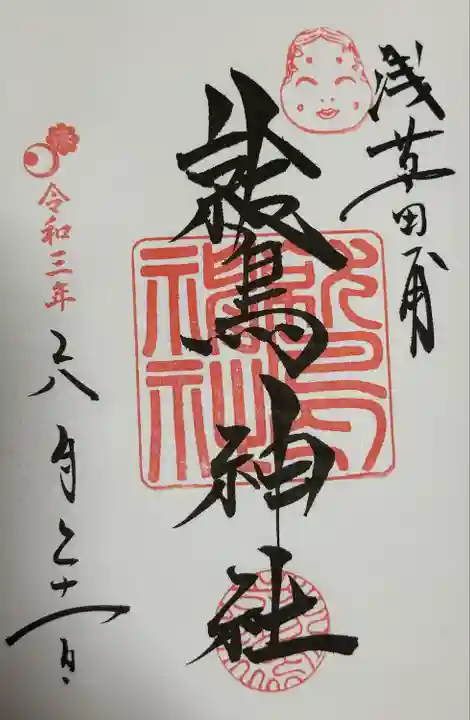 浅草田甫
鷲神社
令和三年
八月二十一日